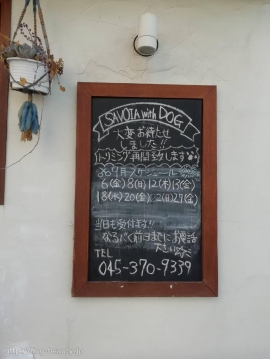 SAVOIA with DOG
大変お待たせ
しました!!
トリミング再開致します
9月スケジュール
6(金)8(日)12(木)13(金)
18(水)20(金)22(日)27(金)
当日も受付ます!!
なるべく前日までにお電話
下さい
TEL
045-370-9339